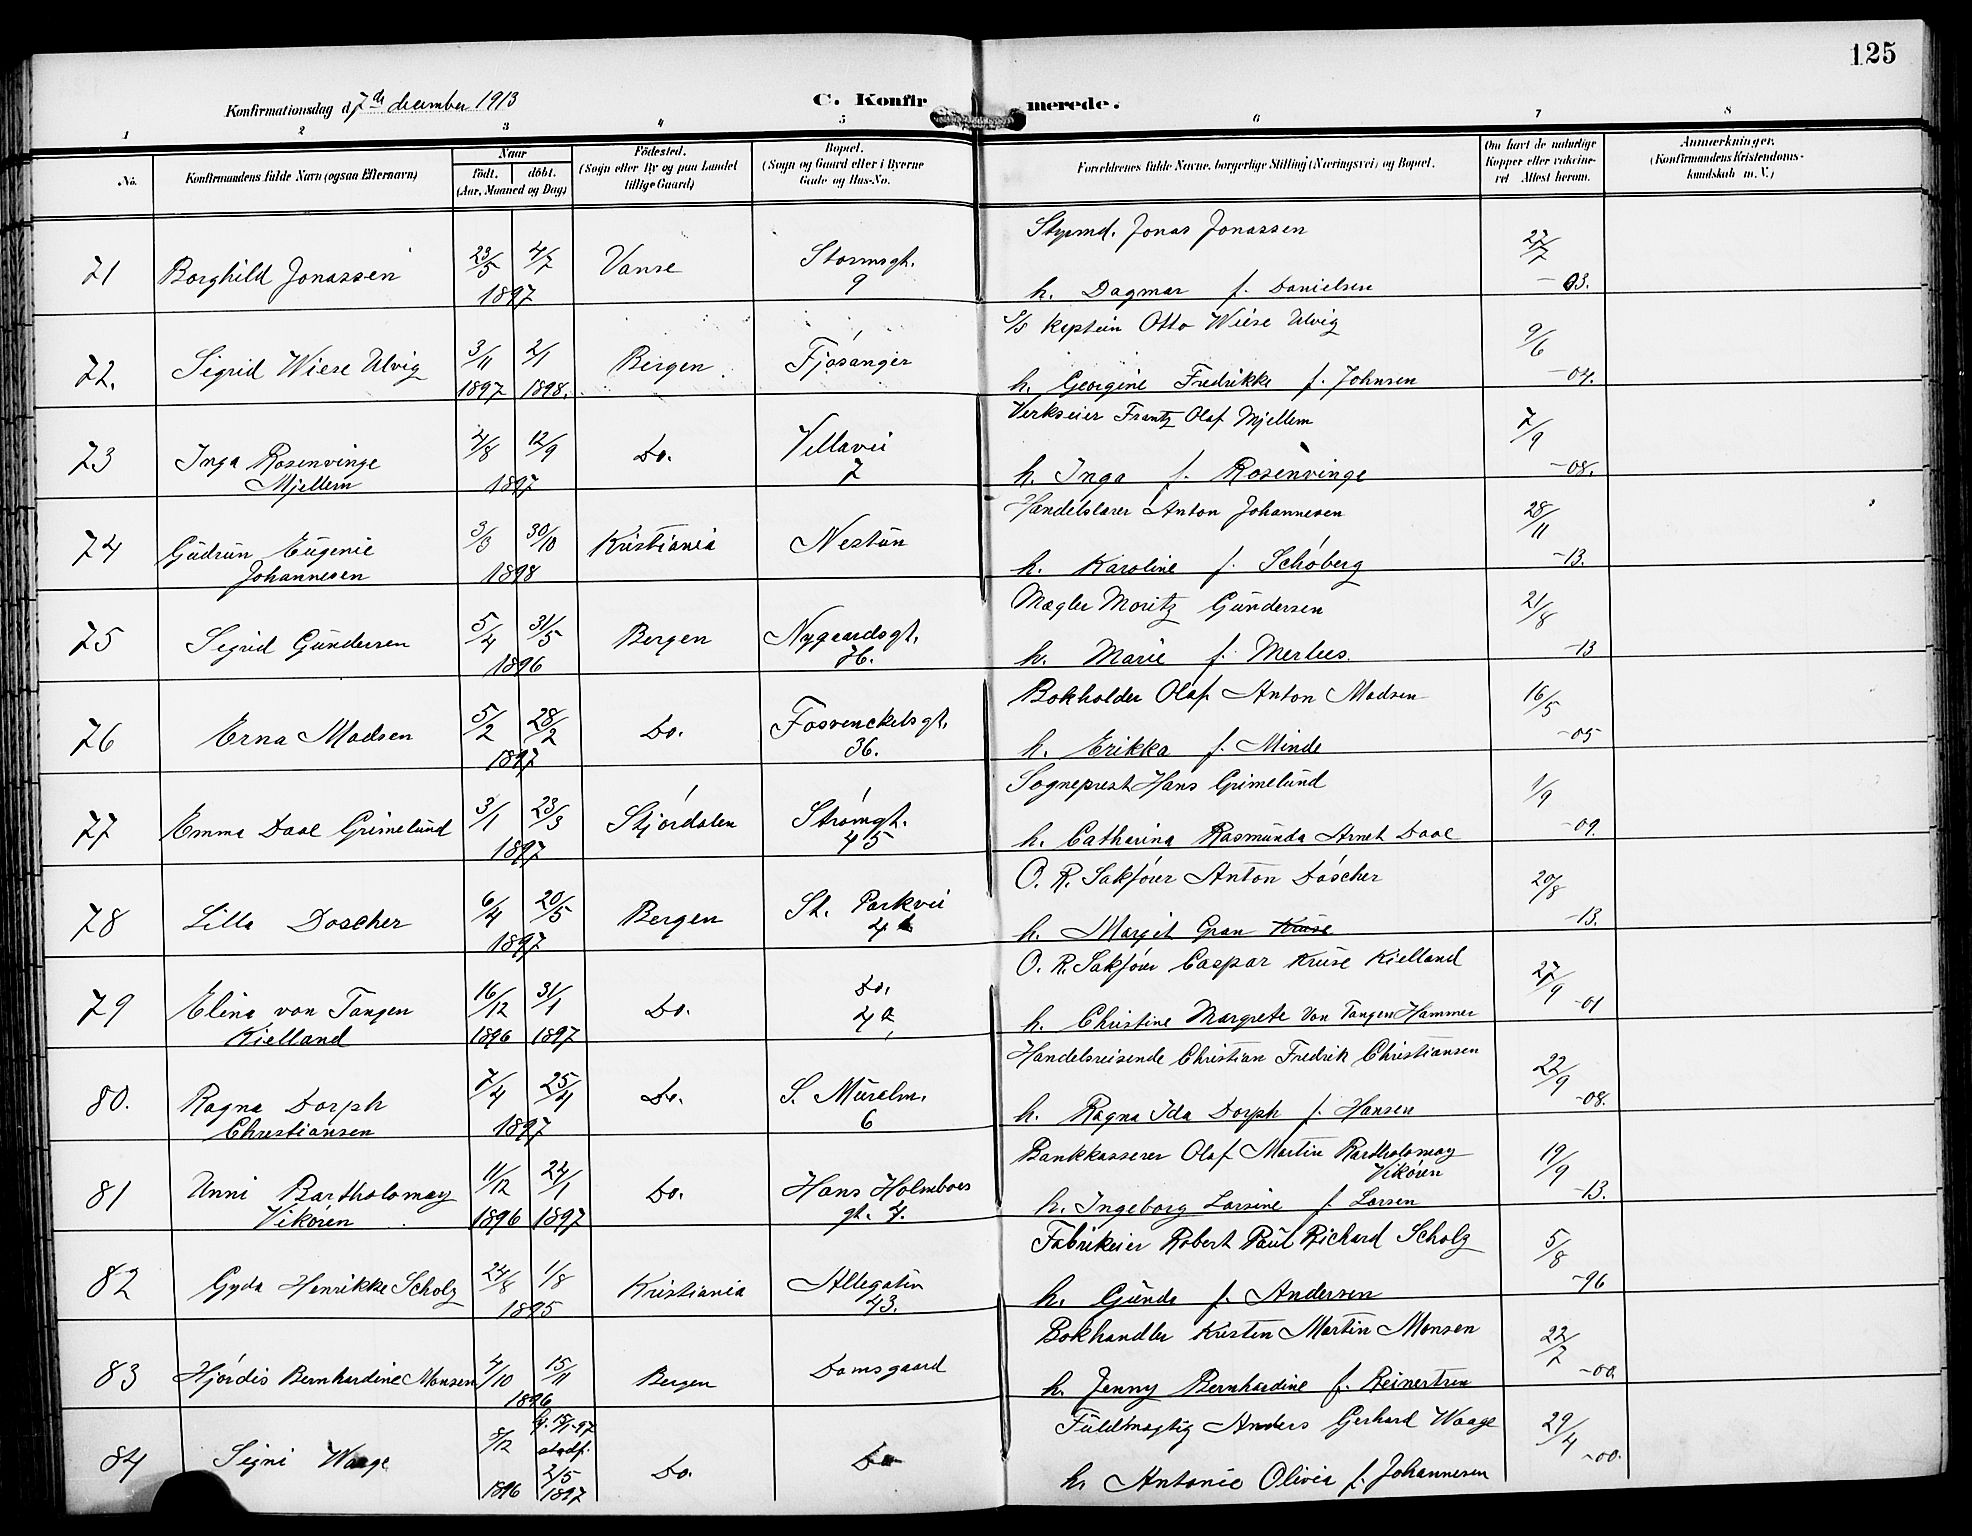 125
Konfirmationsdag d. 7de december 1913
C. Konfirmerede.
1 2 3 4 5 6 7 8
No.
Konfirmandens fulde Navn (ogsaa Efternavn)
Naar
födt. döbt.
(Aar, Maaned og Dag)
Födested.
(Sogn eller By og paa Landet
tillige Gaard)
Bopæl.
(Sogn og Gaard eller i Byerne
Gade og Hus-No.
Forældrenes fulde Navne, borgerlige Stilling (Næringsvei) og Bopæl.
Om havt de naturlige
Kopper eller vakcine-
ret Attest herom.
Anmærkninger.
(Konfirmandens Kristendoms-
kundskab m. V.)
71 Borghild Jonassen 23/5 4/7 1897 Vanse Stormsgt. 9
Styrmd. Jonas Jonassen
h. Dagmar f. Danielsen 27/7 -03.
72. Sigrid Wiese Ulvig 3/11 1897 2/1 1898. Bergen Fjøsanger
S/S kaptein Otto Wiese Ulvig
h. Georgine Fredrikke f. Johnsen 9/6 -04.
73 Inga Rosenvinge Mjellem 4/8 12/9 1897 Do. Villavei 7
Verkseier Frantz Olaf Mjellem
h. Inga f. Rosenvinge 7/9 -08.
74 Gudrun Eugenie Johannesen 3/3 30/10 1898 Kristiania Nestun
Handelslærer Anton Johannesen
h. Karoline f. Schøberg 28/11 -13.
75 Sigrid Gundersen 5/4 31/5 1896 Bergen Nygaardsgt.
Mægler Moritz Gundersen
h. Marie f. Merlees. 21/8 -13
76 Erna Madsen 5/2 28/2 1897 Do. Fosvenckelsgt. 36.
Bokholder Olaf Anton Madsen
h. Erikka f. Minde 16/5 -05
77 Emma Daae Grimelund 3/1 23/3 1897 Stjørdalen Strømgt. 45
Sogneprest Hans Grimelund
h. Catharina Rasmunda Arnet Daae 1/9 -09.
78 Lilla Doscher 6/4 20/5 1897 Bergen St. Parkvei 4
O. R. Sakfører Anton Døscher
h. Margit Gran Kruse 20/8 -13.
79 Elina von Tangen Kielland 16/12 1896 31/1 1897 Do. Do. 4a
O. R. Sakfører Caspar Kruse Kielland
h. Christine Margrete von Tangen Hammer 27/9 -01
80. Ragna Dorph Christiansen 7/4 25/4 1897 Do. S. Muralm. 6
Handelsreisende Christian Fredrik Christiansen
h. Ragna Ida Dorph f. Hansen 22/9 -08.
81 Unni Bartholomay Vikøren 11/12 1896 24/1 1897 Do. Hans Holmboes gt. 7.
Bankkasserer Olaf Martin Bartholomay Vikøren
h. Ingeborg Larsine f. Larsen 19/9 -13.
82 Gyda Henrikke Scholz 24/8 1/8 1895 Kristiania Allegaten 43.
Fabrikeier Robert Paul Richard Scholz
h. Gunda f. Andersen 5/8 -96
83 Hjørdis Bernhardine Monsen 4/10 15/11 1896 Bergen Damsgaard
Bokhandler Kristen Martin Monsen
h. Jenny Bernhardine f. Reinertsen 22/7 -00.
84 Signi Waage 8/12 1896 stadf. 2/5 1897 Do. Do
Fuldmægtig Anders Gerhard Waage
h. Antonie Olivia f. Johannesen 29/4 -00.